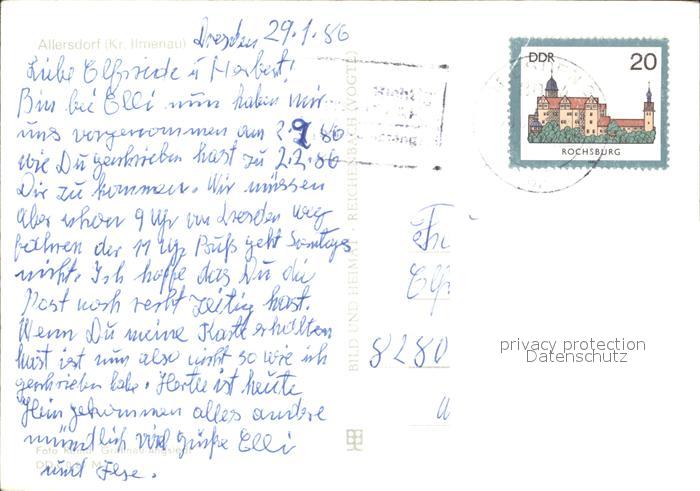 Allersdorf (Kr. Ilmenau)
Dresden 29.1.86
Liebe Elfriede u Herbert!
Bin bei Elli nun haben wir
uns vorgenommen am 2.2.86
wie Du geschrieben hast zu 2.2.86
Dir zu kommen. Wir müssen
aber schon 9 Uhr von Dresden weg
fahren der 11 Uhr Buß geht Sonntags
nicht. Ich hoffe das Du die
Post noch recht zeitig hast.
Wenn Du meine Karte erhalten
hast ist nun also nicht so wie ich
geschrieben habe. ist heute
gekommen alles andere
mündlich viel Grüße Elli
und Ilse.
Foto
DDR
BILD UND HEIMAT · REICHENBACH (VOGTL)
DDR 20
ROCHSBURG
Elf
8280
privacy protection
Datenschutz